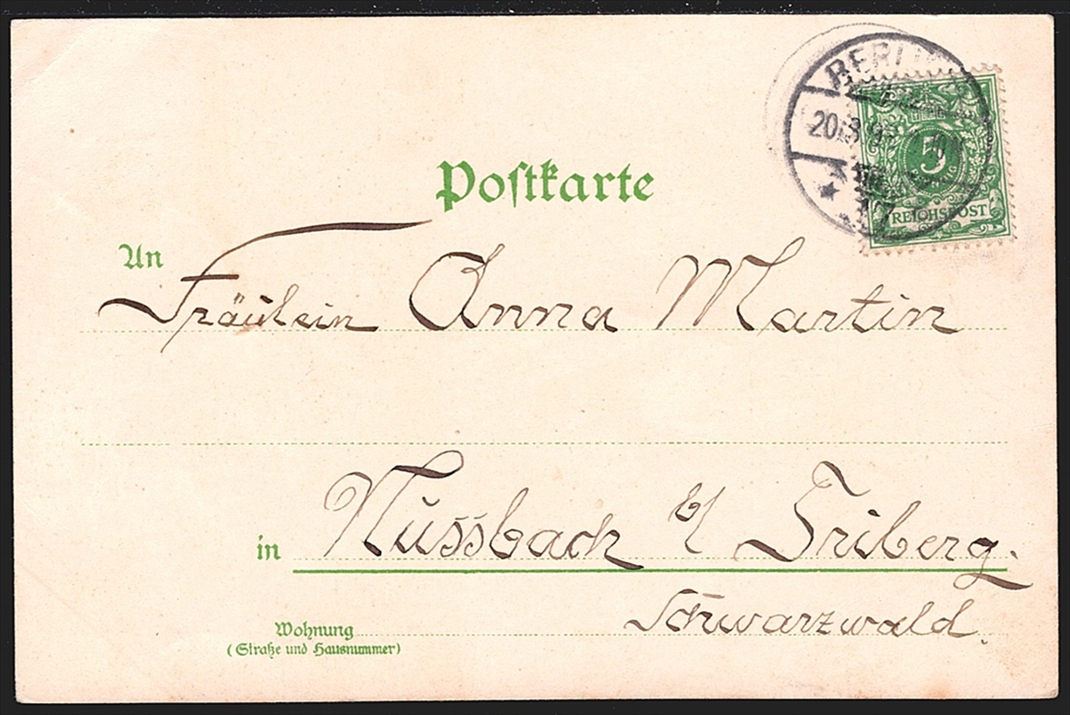 BERLIN
20.3.
5
REICHSPOST
Postkarte
An
Fräulein Anna Martin
in Nussbach b/ Triberg.
Schwarzwald.
Wohnung
(Straße und Hausnummer)